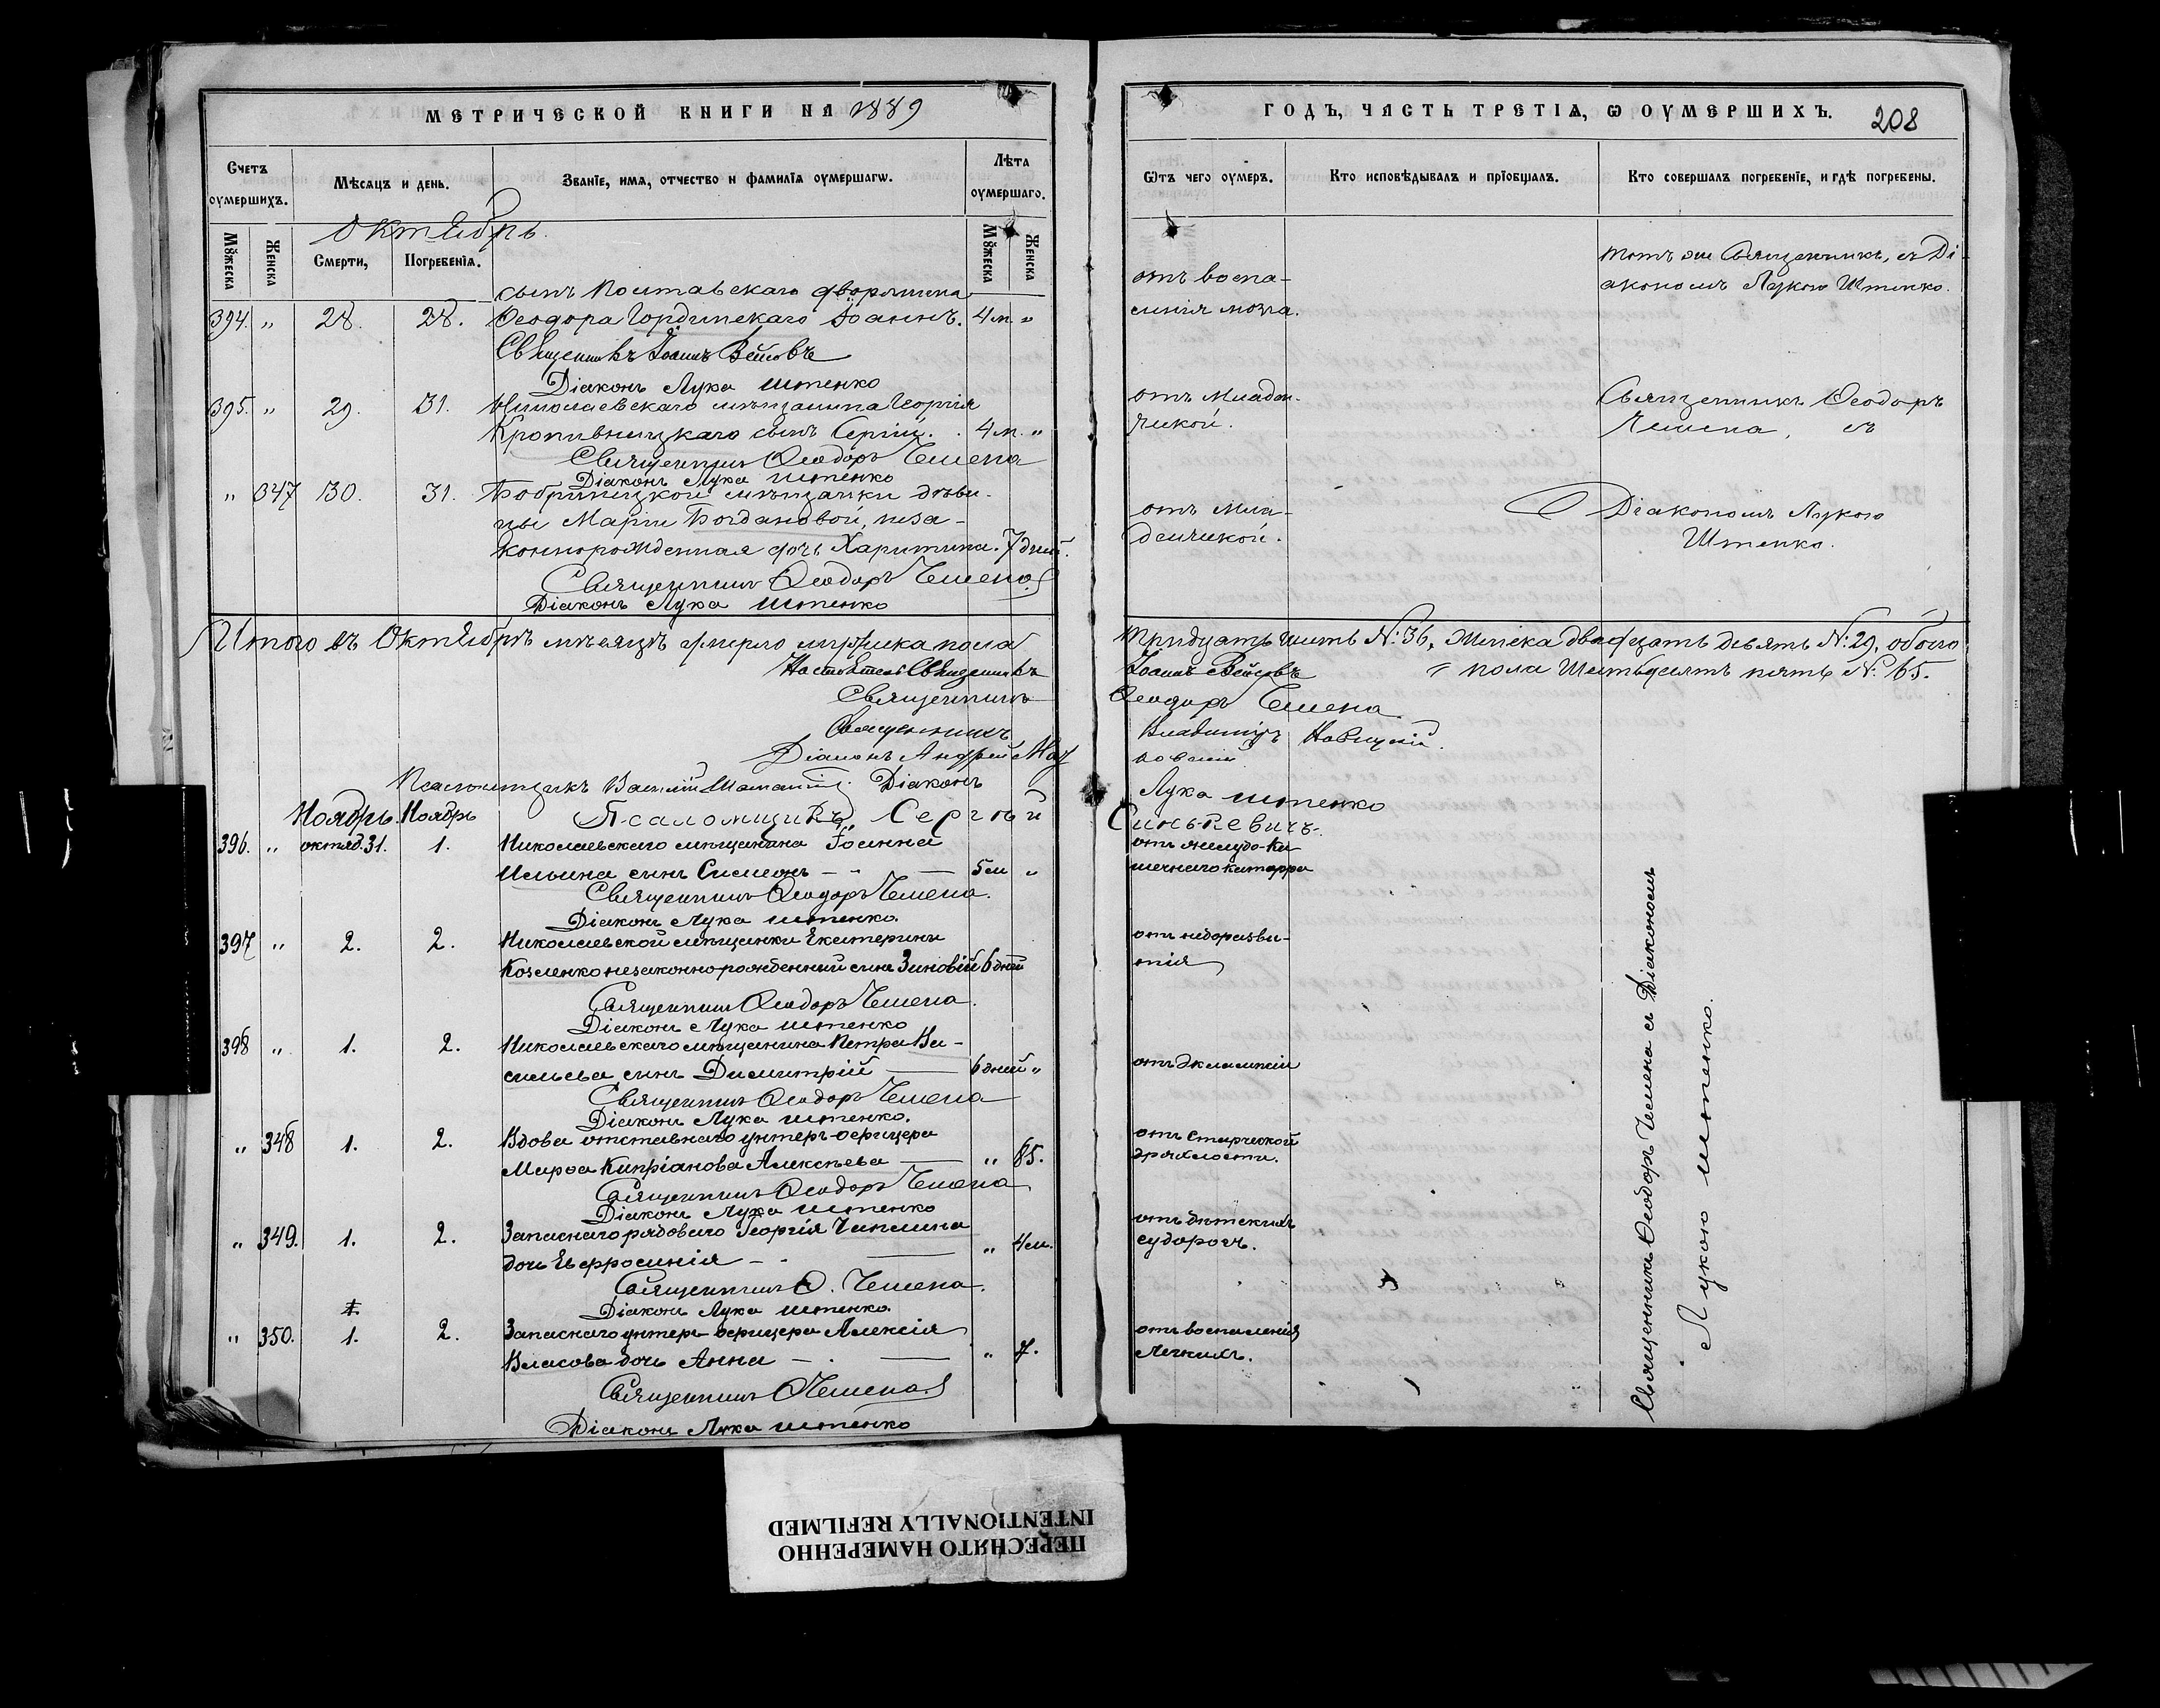 МЕТРИЧЕСКОЙ КНИГИ НА 1889
ГОДЪ, ЧАСТЬ ТРЕТІѦ, Ѡ ОУМЕРШИХЪ. 208
Счетъ оумершихъ.
Мѣсѧцъ и день.
Званїе, имѧ, отчество и фамилїѧ оумершагѡ.
Лѣта оумершаго.
Ѿтъ чего оумеръ.
Кто исповѣдывалъ и прїобщалъ.
Кто совершалъ погребенїе, и гдѣ погребены.
Мꙋжеска
Женска
Октябрь
Смерти,
Погребенїѧ.
Мꙋжеска
Женска
сынъ Полтавскаго дворянина
394. " 28. 28. Ѳеодора Гординскаго Іоаннъ. 4 м. "
Священникъ Іоаннъ
Діаконъ Лука Штенко
395. " 29. 31. Николаевскаго мѣщанина Георгія
Кропивницкаго сынъ Сергій. 4 м. "
Священникъ Ѳеодоръ Чемена
Діаконъ Лука Штенко
" 347 30. 31. Бобринецкой мѣщанки дѣви-
цы Маріи Богдановой, неза-
коннорожденная дочь Харитина. 7 дней.
Священникъ Ѳеодоръ Чемена
Діаконъ Лука Штенко
Итого въ Октябрѣ мѣсяцѣ умерло мужеска пола
Настоятель Священникъ
Священникъ
Священникъ
Діаконъ Андрей
Псаломщикъ Василій Діаконъ
Ноябрь. Ноябрь Псаломщикъ Сергѣй
396. " октяб. 31. 1. Николаевскаго мѣщанина Іоанна
Ильина сынъ Симеонъ — 5 м "
Священникъ Ѳеодоръ Чемена.
Діаконъ Лука Штенко.
397 " 2. 2. Николаевской мѣщанки Екатерины
Козленко незаконнорожденный сынъ Зиновій 6 дней
Священникъ Ѳеодоръ Чемена.
Діаконъ Лука Штенко
398 " 1. 2. Николаевскаго мѣщанина Петра Ва-
сильева сынъ Димитрій — 6 дней "
Священникъ Ѳеодоръ Чемена
Діаконъ Лука Штенко.
" 348 1. 2. Вдова отставнаго унтеръ-офицера
Марфа Кипріанова Алексѣева — " 85.
Священникъ Ѳеодоръ Чемена
Діаконъ Лука Штенко
" 349. 1. 2. Запаснаго рядоваго Георгія
дочь Евфросинія — " 4 м.
Священникъ Ѳ. Чемена.
Діаконъ Лука Штенко.
" 350. 1. 2. Запаснаго унтеръ-офицера Алексія
Власова дочь Анна — " 7.
Священникъ Ѳ Чемена
Діаконъ Лука Штенко
отъ воспа-
ленія мозга.
тотъ же Священникъ, съ Ді-
акономъ Лукою Штенко.
отъ Младен-
ческой.
Священникъ Ѳеодоръ
Чемена, съ
отъ Мла-
денческой.
Діакономъ Лукою
Штенко.
тридцать шесть №: 36, женска двадцать девять №: 29, обоего
пола Шестьдесятъ пять №: 65.
Іоаннъ
Ѳеодоръ Чемена
Владиміръ Новицкій.
Лука Штенко
Синькевичъ.
отъ желудо-ки
шечнаго катарра
отъ недоразви-
тія
отъ Эклампсіи
отъ старческой
дряхлости.
отъ дѣтскихъ
судорогъ.
отъ воспаленія
Легкихъ.
Священникъ Ѳеодоръ Чемена съ Діакономъ
Лукою Штенко.
ПЕРЕСНЯТО НАМЕРЕННО
INTENTIONALLY REFILMED